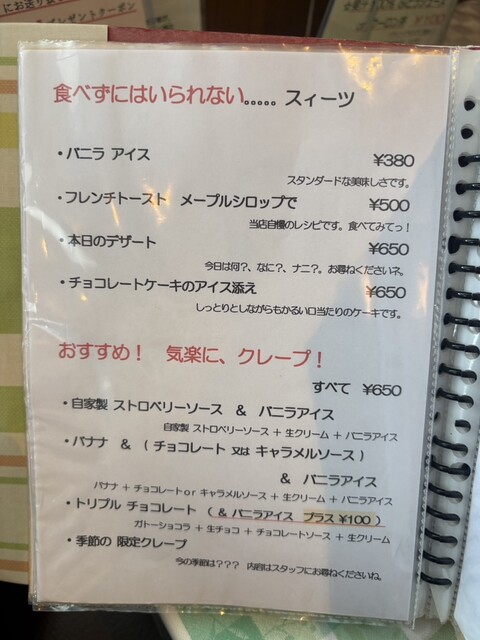 食べずにはいられない..... スィーツ
・バニラ アイス ¥380
スタンダードな美味しさです。
・フレンチトースト メープルシロップで ¥500
当店自慢のレシピです。食べてみてっ！
・本日のデザート ¥650
今日は何？、なに？、ナニ？。お尋ねくださいネ。
・チョコレートケーキのアイス添え ¥650
しっとりとしながらもかるい口当たりのケーキです。
おすすめ！ 気楽に、クレープ！
すべて ¥650
・自家製 ストロベリーソース ＆ バニラアイス
自家製 ストロベリーソース ＋ 生クリーム ＋ バニラアイス
・バナナ ＆ （ チョコレート 又は キャラメルソース ）
＆ バニラアイス
バナナ ＋ チョコレートor キャラメルソース ＋ 生クリーム ＋ バニラアイス
・トリプル チョコレート （ ＆ バニラアイス プラス ¥100 ）
ガトーショコラ ＋ 生チョコ ＋ チョコレートソース ＋ 生クリーム
・季節の 限定クレープ
今の季節は？？？ 内容はスタッフにお尋ねくださいね。